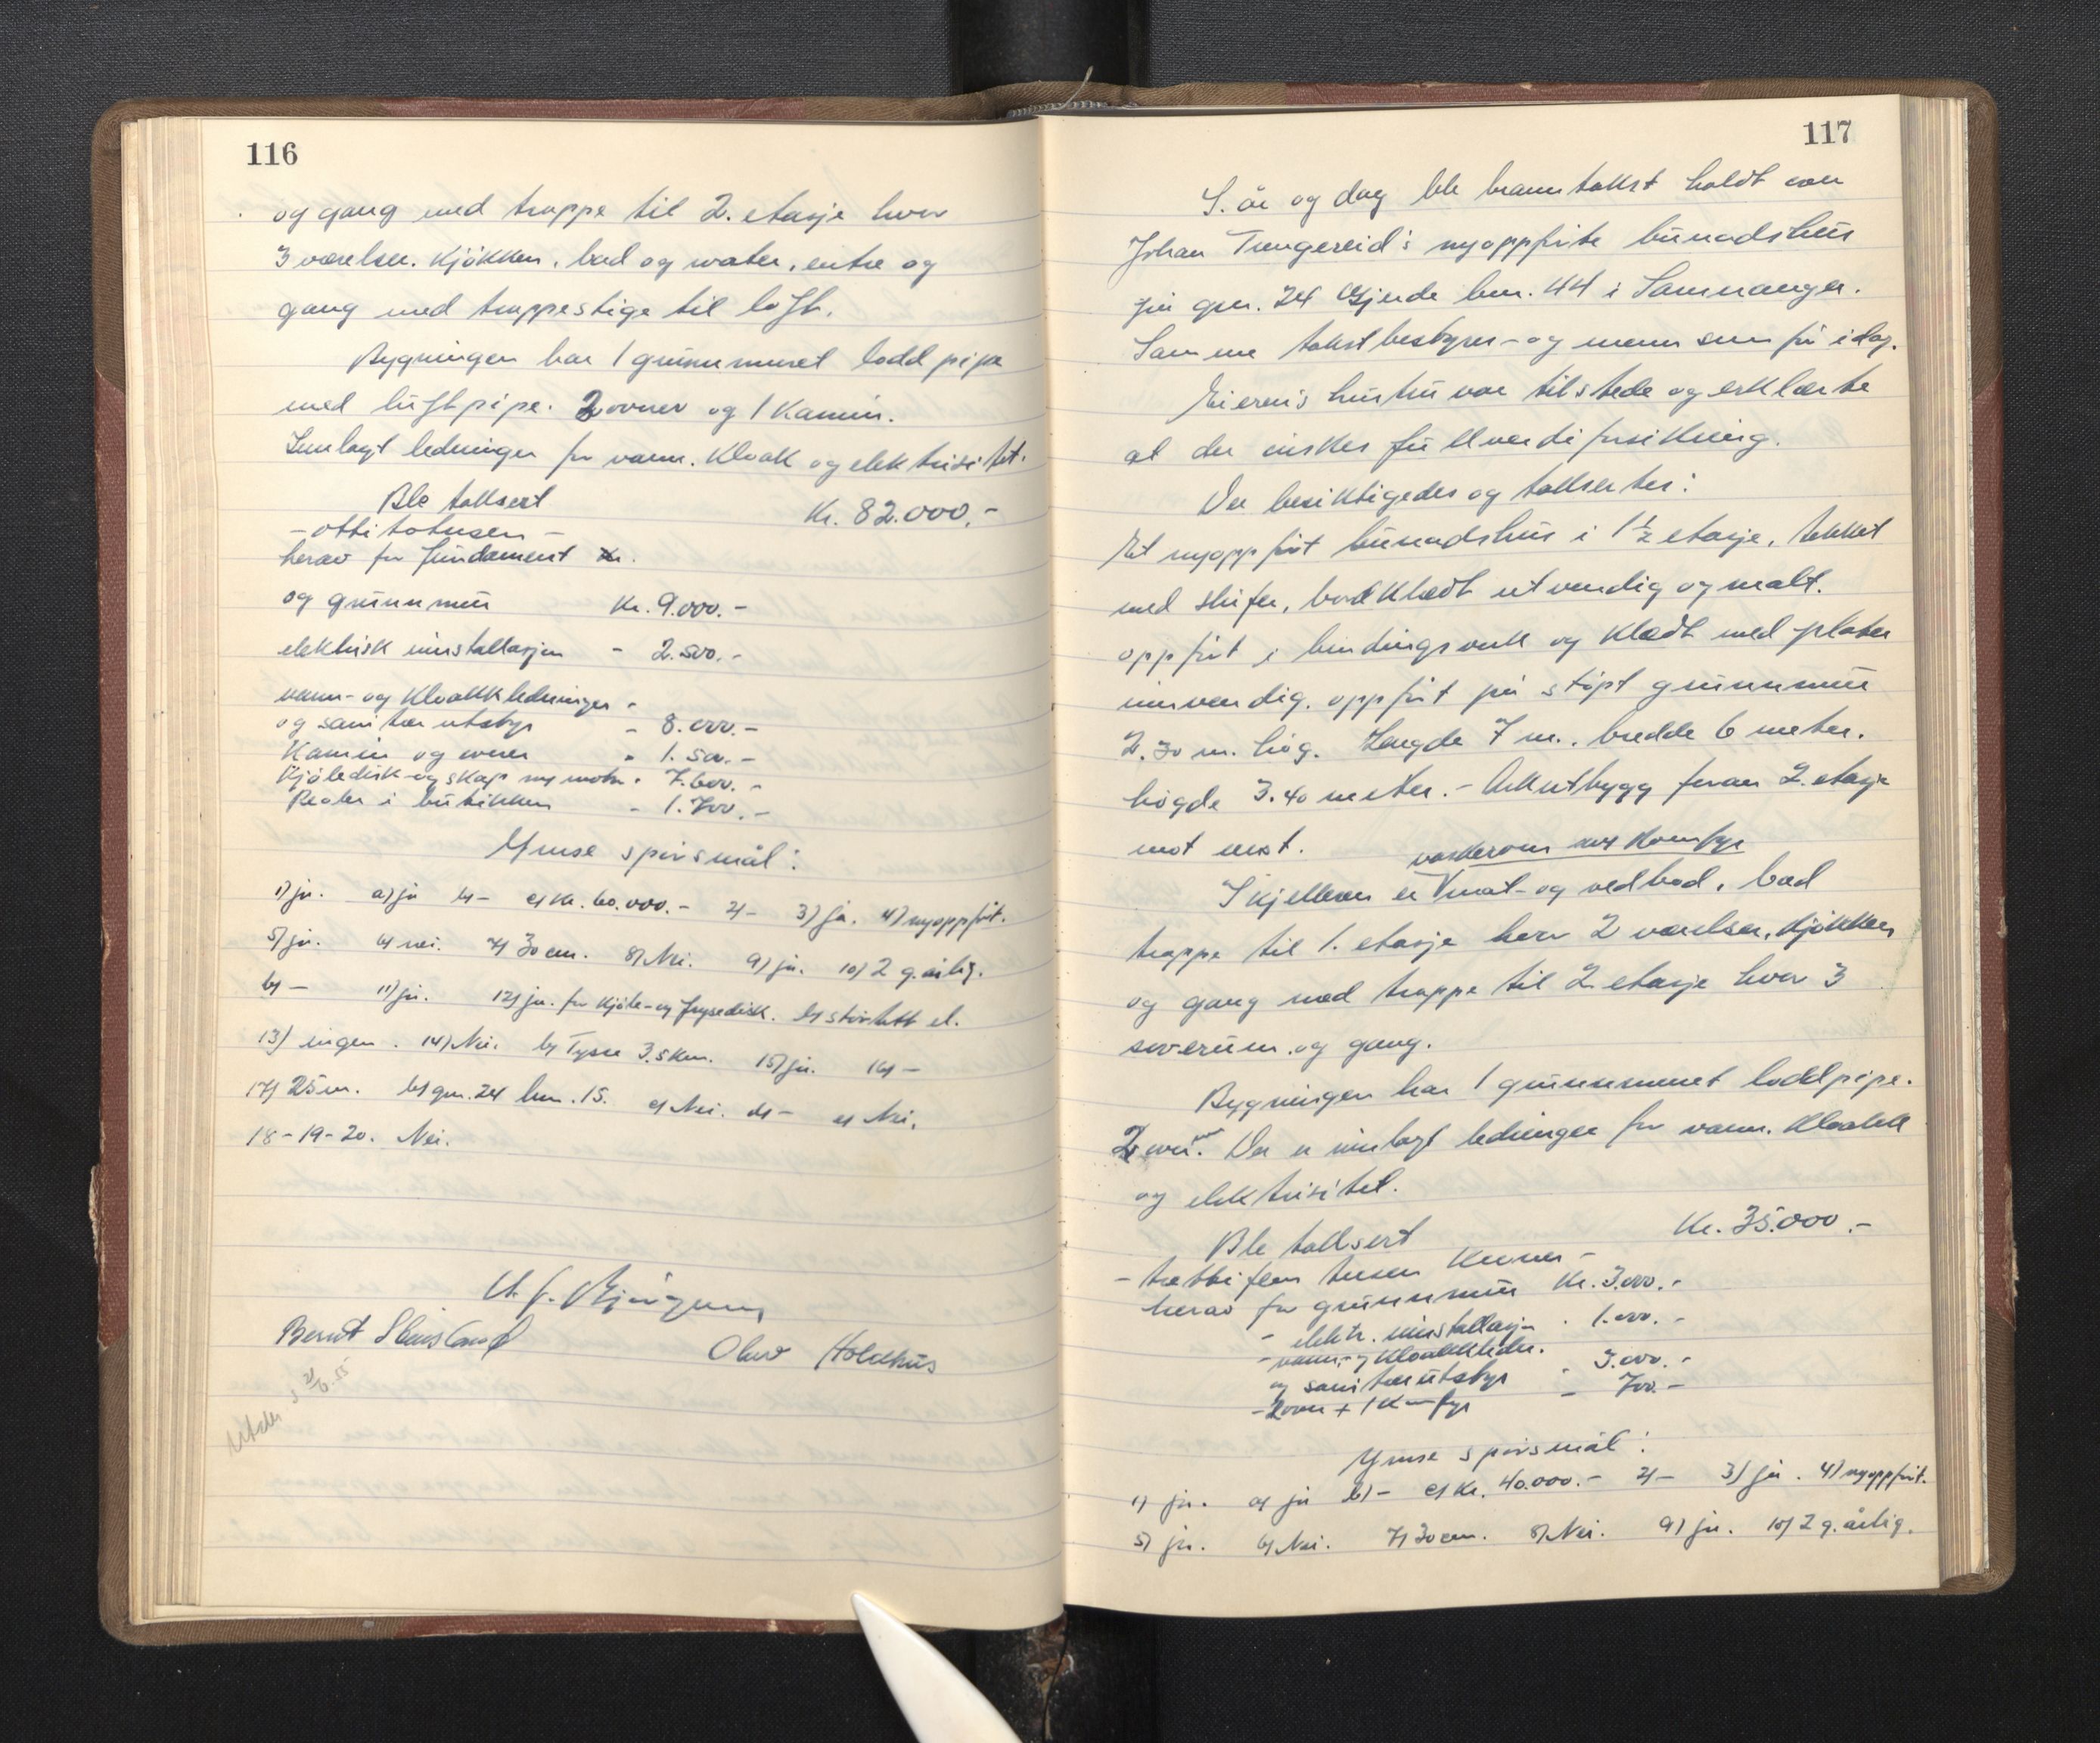 116
og gang med trappe til 2. etasje hvor
3 værelser. Kjøkken, bad og water, entre og
gang med trappestige til loft.
Bygningen har 1 grunnmuret loddpipe
med luftpipe. 2 ovner og 1 Kamin.
Innlagt ledninger for vann. Kloakk og elektrisitet.
Ble taksert Kr. 82.000,-
- ottitotusen -
herav for fundament
og grunnmur Kr. 9.000.-
elektrisk innstallasjon - 2.500.-
vann- og Kloakkledninger
og sanitær utstyr - 8.000.-
Kamin og ovner - 1.500.-
Kjøledisk- og skap m/motor. 7.600.-
Reoler i butikken - 1.700.-
Ymse spörsmål:
1) ja. a) ja b) - c) Kr. 60.000.- 2) - 3) ja. 4) nyoppfört.
5) ja. 6) nei. 7) 30 cm. 8) Nei. 9) ja. 10) 2 g. årlig.
b) - 11) ja. 12) ja. for Kjöle- og frysedisk. b) störtett el.
13) ingen. 14) Nei. b) Tysse 3.5 Km. 15) ja. 16) -
17) 25 m. b) gnr. 24 bnr. 15. c) Nei. d) - e) Nei.
18-19-20. Nei.
Bernt
Olav Holdhus
117
S. år og dag ble branntakst holdt over
Johan Tvengereid's nyoppförte bunadshus
på gnr. 24 Gjerde bnr. 44 i Samnanger.
Samme takstbestyrer- og menn som för idag.
Eieren's hustru var tilstede og erklærte
at der önskes fullverdiforsikring.
Der besiktigedes og taksertes:
Et nyoppfört bunadshus i 1½ etasje, tekket
med skifer, bordklædt utvendig og malt.
oppfört i bindingsverk og Klædt med plater
innvendig. oppfört på stöpt grunnmur
2.30 m. hög. Længde 7 m., bredde 6 meter.
högde 3.40 meter. - Arkutbygg foran 2. etasje
mot vest.
vaskerom m/Komfyr
I kjelleren er mat- og vedbod, bad
trappe til 1. etasje hvor 2 værelser, Kjökken
og gang med trappe til 2 etasje hvor 3
soverum og gang.
Bygningen har 1 grunnmuret loddpipe.
2 ovner. Der er innlagt ledninger for vann. Kloakk
og elektrisitet.
Ble taksert Kr. 35.000.-
- trettifem tusen Kroner -
herav for grunnmur Kr. 3.000.-
- elektr. innstallasjon - 1.000.-
- vann- og Kloakkledn.
og sanitærutstyr - 3.000.-
- 2 ovner + 1 Komfyr - 700.-
Ymse spörsmål:
1) ja. a) ja b) - c) Kr. 40.000.- 2) - 3) ja. 4) nyoppfört.
5) ja. 6) Nei. 7) 30 cm. 8) Nei. 9) ja. 10) 2 g. årlig.